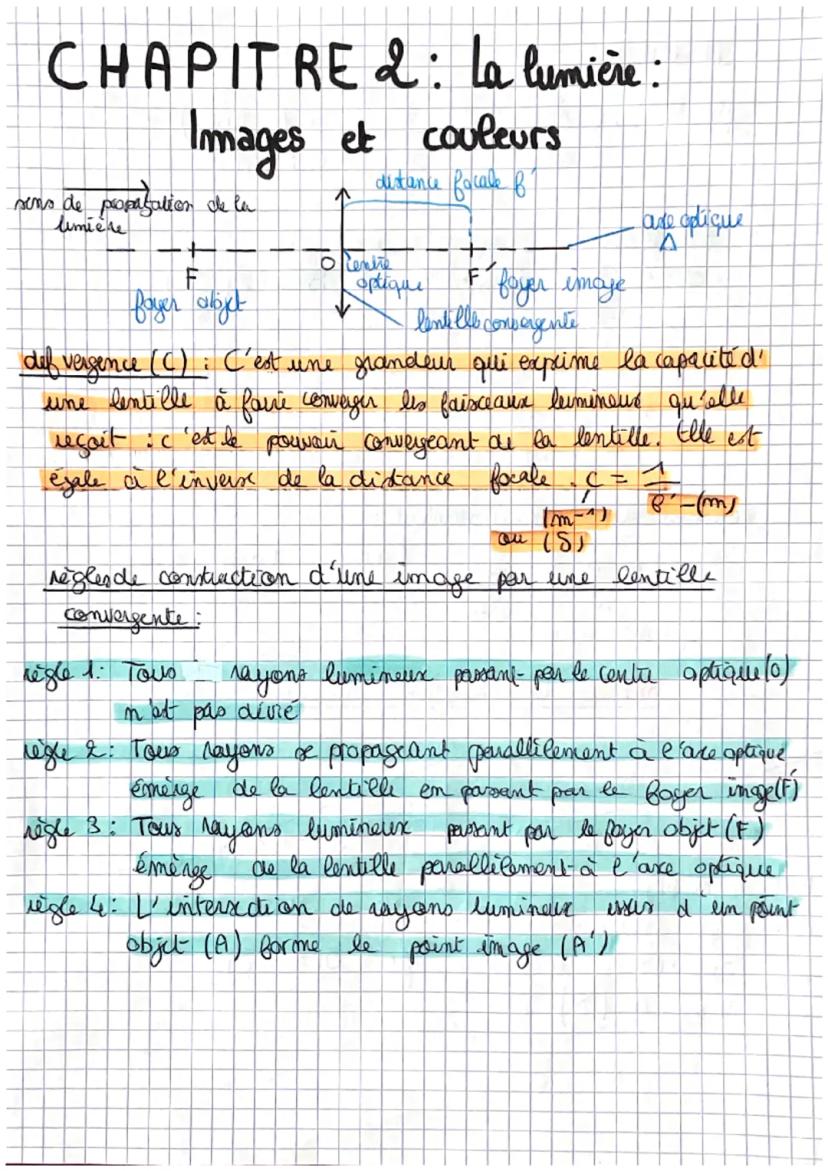 CHAPITRE 2 : La lumière :
Images et couleurs
distance focale f'
sens de propagation de la
lumière
axe optique
Δ
O
centre
optique
F
F'
foyer image
foyer objet
lentille convergente
def vergence (C) : C'est une grandeur qui exprime la capacité d'
une lentille à faire converger les faisceaux lumineux qu'elle
reçoit : c'est le pouvoir convergeant de la lentille. Elle est
égale à l'inverse de la distance focale. C = 1
f' - (m)
(m⁻¹)
ou (δ)
règles de construction d'une image par une lentille
convergente :
règle 1: Tous rayons lumineux passant par le centre optique (O)
n'est pas dévié
règle 2: Tous rayons se propageant parallèlement à l'axe optique
émèrge de la lentille en passant par le foyer image (F')
règle 3: Tous rayons lumineux passant par le foyer objet (F)
émèrge de la lentille parallèlement à l'axe optique
règle 4: L'intersection de rayons lumineux issus d'un point
objet (A) forme le point image (A')